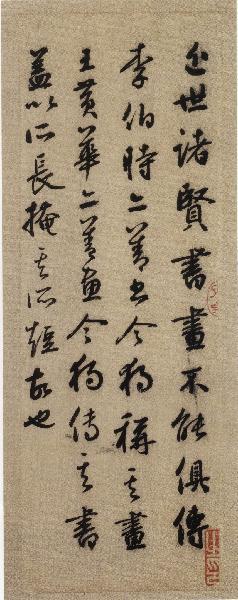 近世诸賢書畫不能俱傳
李伯時亦善书今獨稱其畫
王黄華亦善画今獨傳其書
盖以所長掩其所短故也